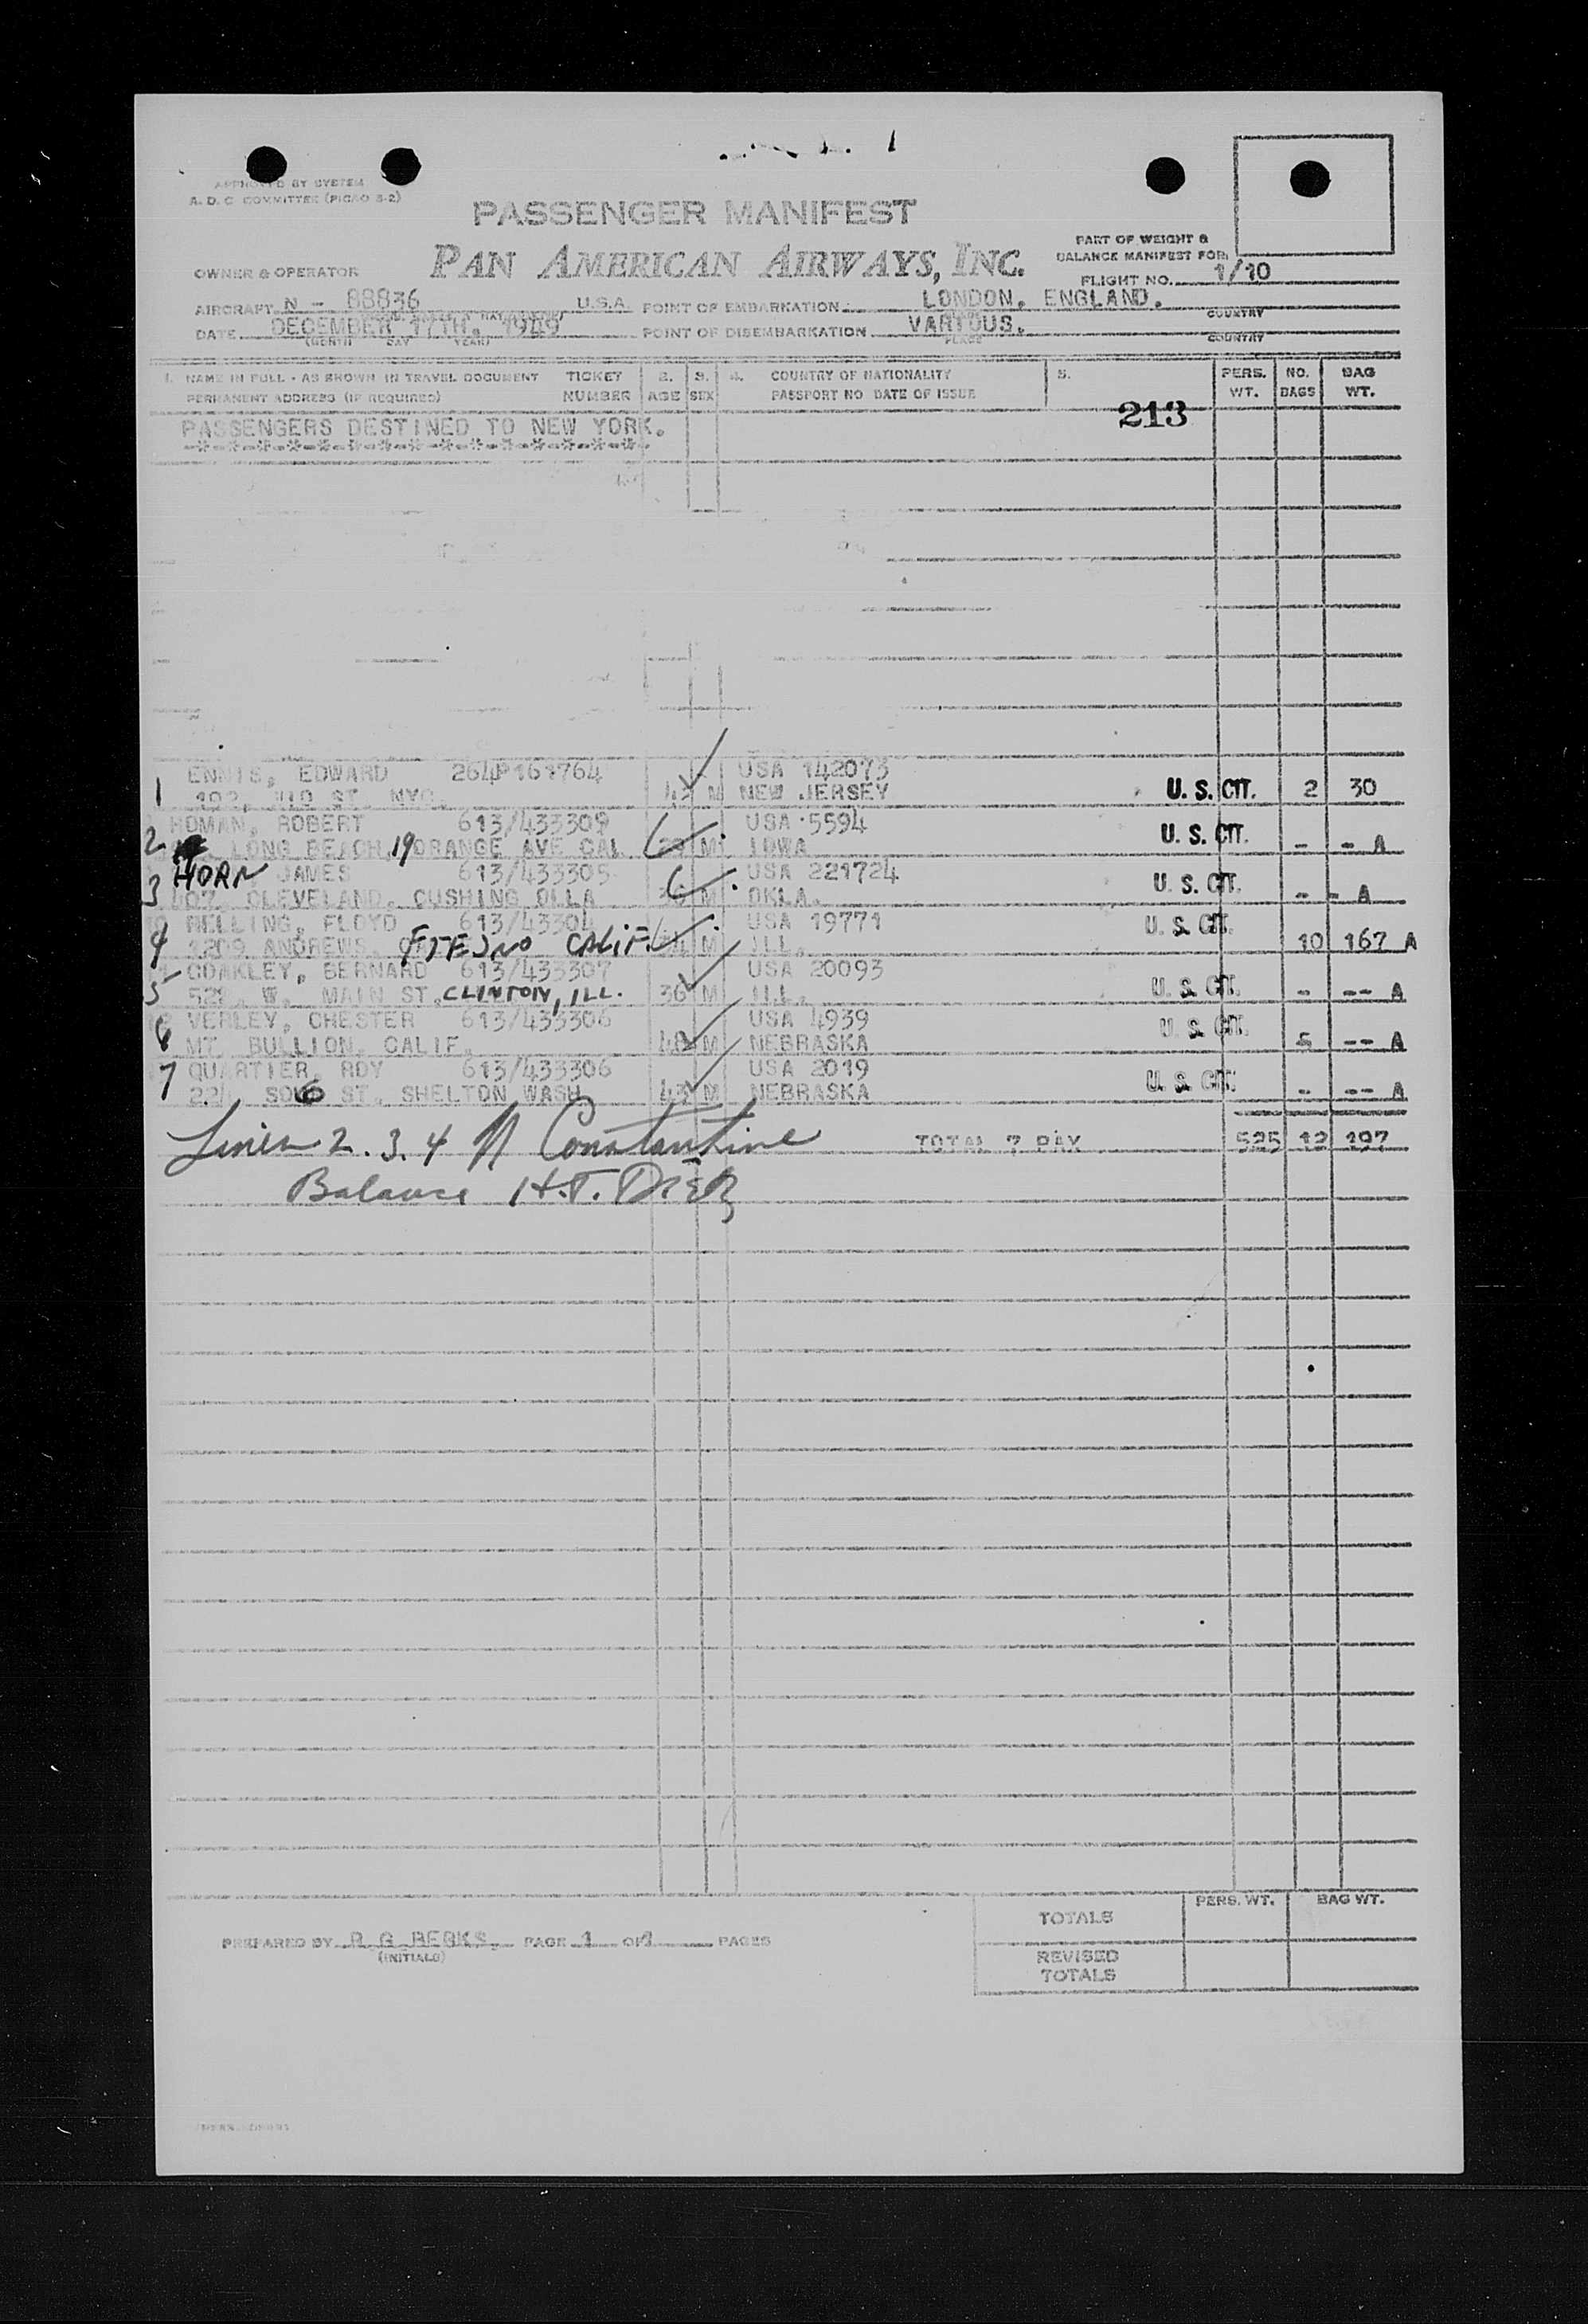 APPROVED BY SYSTEM
A. D. C COMMITTEE (PICAO S-2)
PASSENGER MANIFEST
PAN AMERICAN AIRWAYS, INC.
PART OF WEIGHT &
BALANCE MANIFEST FOR
OWNER & OPERATOR
FLIGHT NO. 1/10
AIRCRAFT N - 88836 U.S.A. POINT OF EMBARKATION LONDON, ENGLAND.
COUNTRY
DATE DECEMBER 17TH. 1949 POINT OF DISEMBARKATION VARIOUS.
(MONTH DAY YEAR) PLACE COUNTRY
1. NAME IN FULL - AS SHOWN IN TRAVEL DOCUMENT TICKET 2. 3. 4. COUNTRY OF NATIONALITY 5. PERS. NO. BAG
PERMANENT ADDRESS (IF REQUIRED) NUMBER AGE SEX PASSPORT NO DATE OF ISSUE WT. BAGS WT.
213
PASSENGERS DESTINED TO NEW YORK.
-*-*-*-*-*-*-*-*-*-*-*-*-*-*-*-
ENNIS, EDWARD USA 142073
1 ST. NYC. M NEW JERSEY U. S. CIT. 2 30
HOMAN, ROBERT 613/433309 USA 5594
2 LONG BEACH, 19 ORANGE AVE CAL M IOWA U. S. CIT. - - A
HORN JAMES 613/433305 USA 221724
3 CLEVELAND, CUSHING OLLA M OKLA. U. S. CIT. - - A
FLOYD 613/43304 USA 19771
4 1209 ANDREWS, CALIF. M ILL. U. S. CIT. 10 167 A
COAKLEY, BERNARD 613/433307 USA 20093
5 W. MAIN ST. CLINTON, ILL. 36 M ILL. U. S. CIT. - -- A
VERLEY, CHESTER 613/433306 USA 4939
6 MT. BULLION, CALIF. 48 M NEBRASKA U. S. CIT. 5 -- A
QUARTIER, ROY 613/433306 USA 2019
7 ST. SHELTON WASH 43 M NEBRASKA U. S. CIT. - -- A
Lines 2. 3. 4 Constantine TOTAL 7 PAX 525 12 197
Balance H.T. Diez
PERS. WT. BAG WT.
TOTALS
PREPARED BY R G BERKS. PAGE 1 OF 1 PAGES
(INITIALS)
REVISED
TOTALS